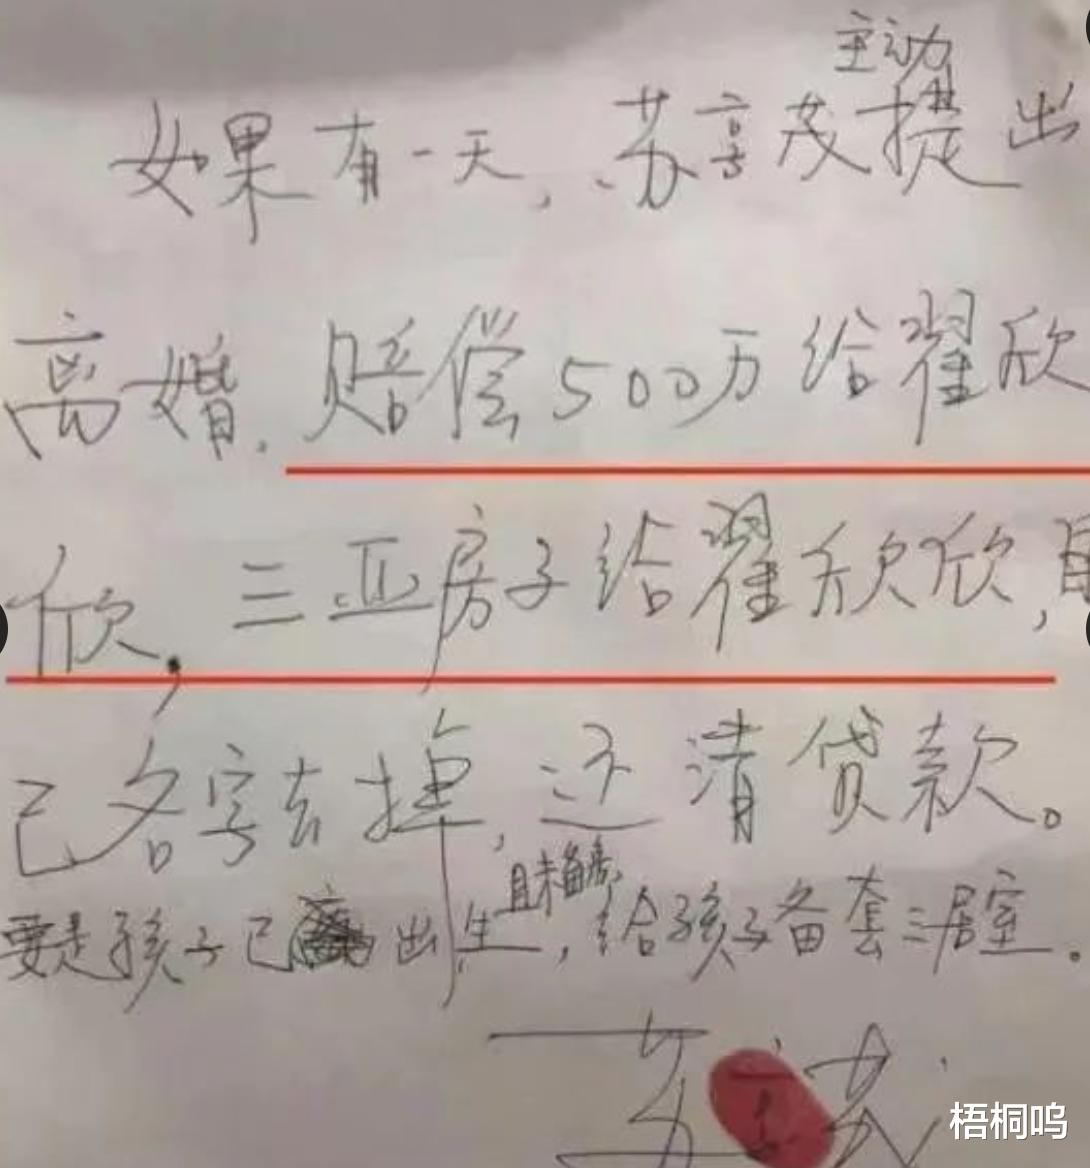 主动
如果有一天,苏享茂提出
离婚.赔偿500万给翟欣
欣,三亚房子给翟欣欣,自
己名字去掉,还清贷款。
且未备房,
要是孩子已出生,给孩子备套三居室.
苏享茂
梧桐呜